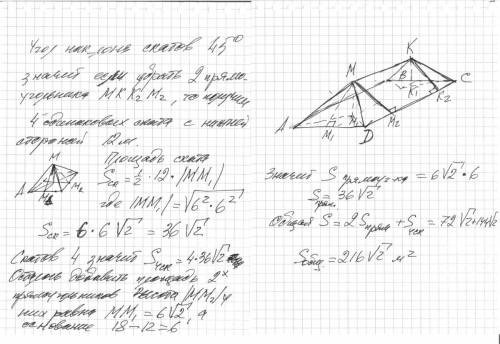 Угол наклона скатов 45°
значит если убрать 2 прямо-
угольника MKK₂M₂, то получим
4 одинаковых ската с нижней
стороной 12 м.
Площадь ската
Sск = 1/2 · 12 · |MM₁|
где |MM₁| = √(6² · 6²)
Sск = 6 · 6√2 = 36√2
Скатов 4 значит S4ск = 4·36√2
добавить площадь 2ˣ
прямоугольников Высота |MM₂| у
них равна MM₁ = 6√2, а
основание 18 − 12 = 6
M
A
M₂
K
M
B
C
K₁
K₂
A
M₁
D
M₂
Значит S прямоуг-ка = 6√2 · 6
Sпрям. = 36√2
Общая S = 2Sпрям + S4ск = 72√2 + 144√2
Sобщ = 216√2 м²